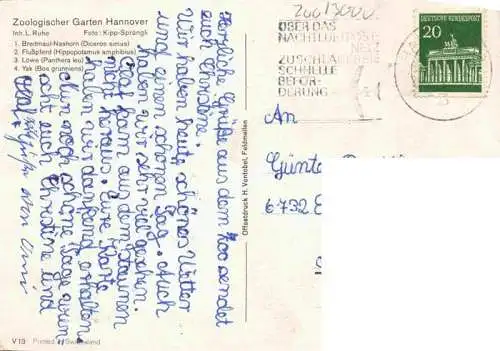 Zoologischer Garten Hannover
Inh. L. Ruhe Foto: Kipp-Sprangk
1. Breitmaul-Nashorn (Diceros simus)
2. Flußpferd (Hippopotamus amphibius)
3. Löwe (Panthera leu)
4. Yak (Bos grunniens)
Herzliche Grüße aus dem Zoo sendet
euch Christine.
Wir haben heute schönes Wetter
und einen schönen Tag. Auch
haben wir sehr viel gesehen.
Olaf kam aus dem Staunen
nicht heraus. Eure Karte
haben wir dankend erhalten.
noch schöne Tage
euch Christine und
Olaf
V 19 Printed Switzerland
Offsetdruck H. Vontobel, Feldmeilen
ÜBER DAS
NACHTLUFTPOST
NETZ
ZUSCHLAGFREIE
SCHNELLE
BEFÖR
DERUNG
DEUTSCHE BUNDESPOST
20
An
Günter
6732 E